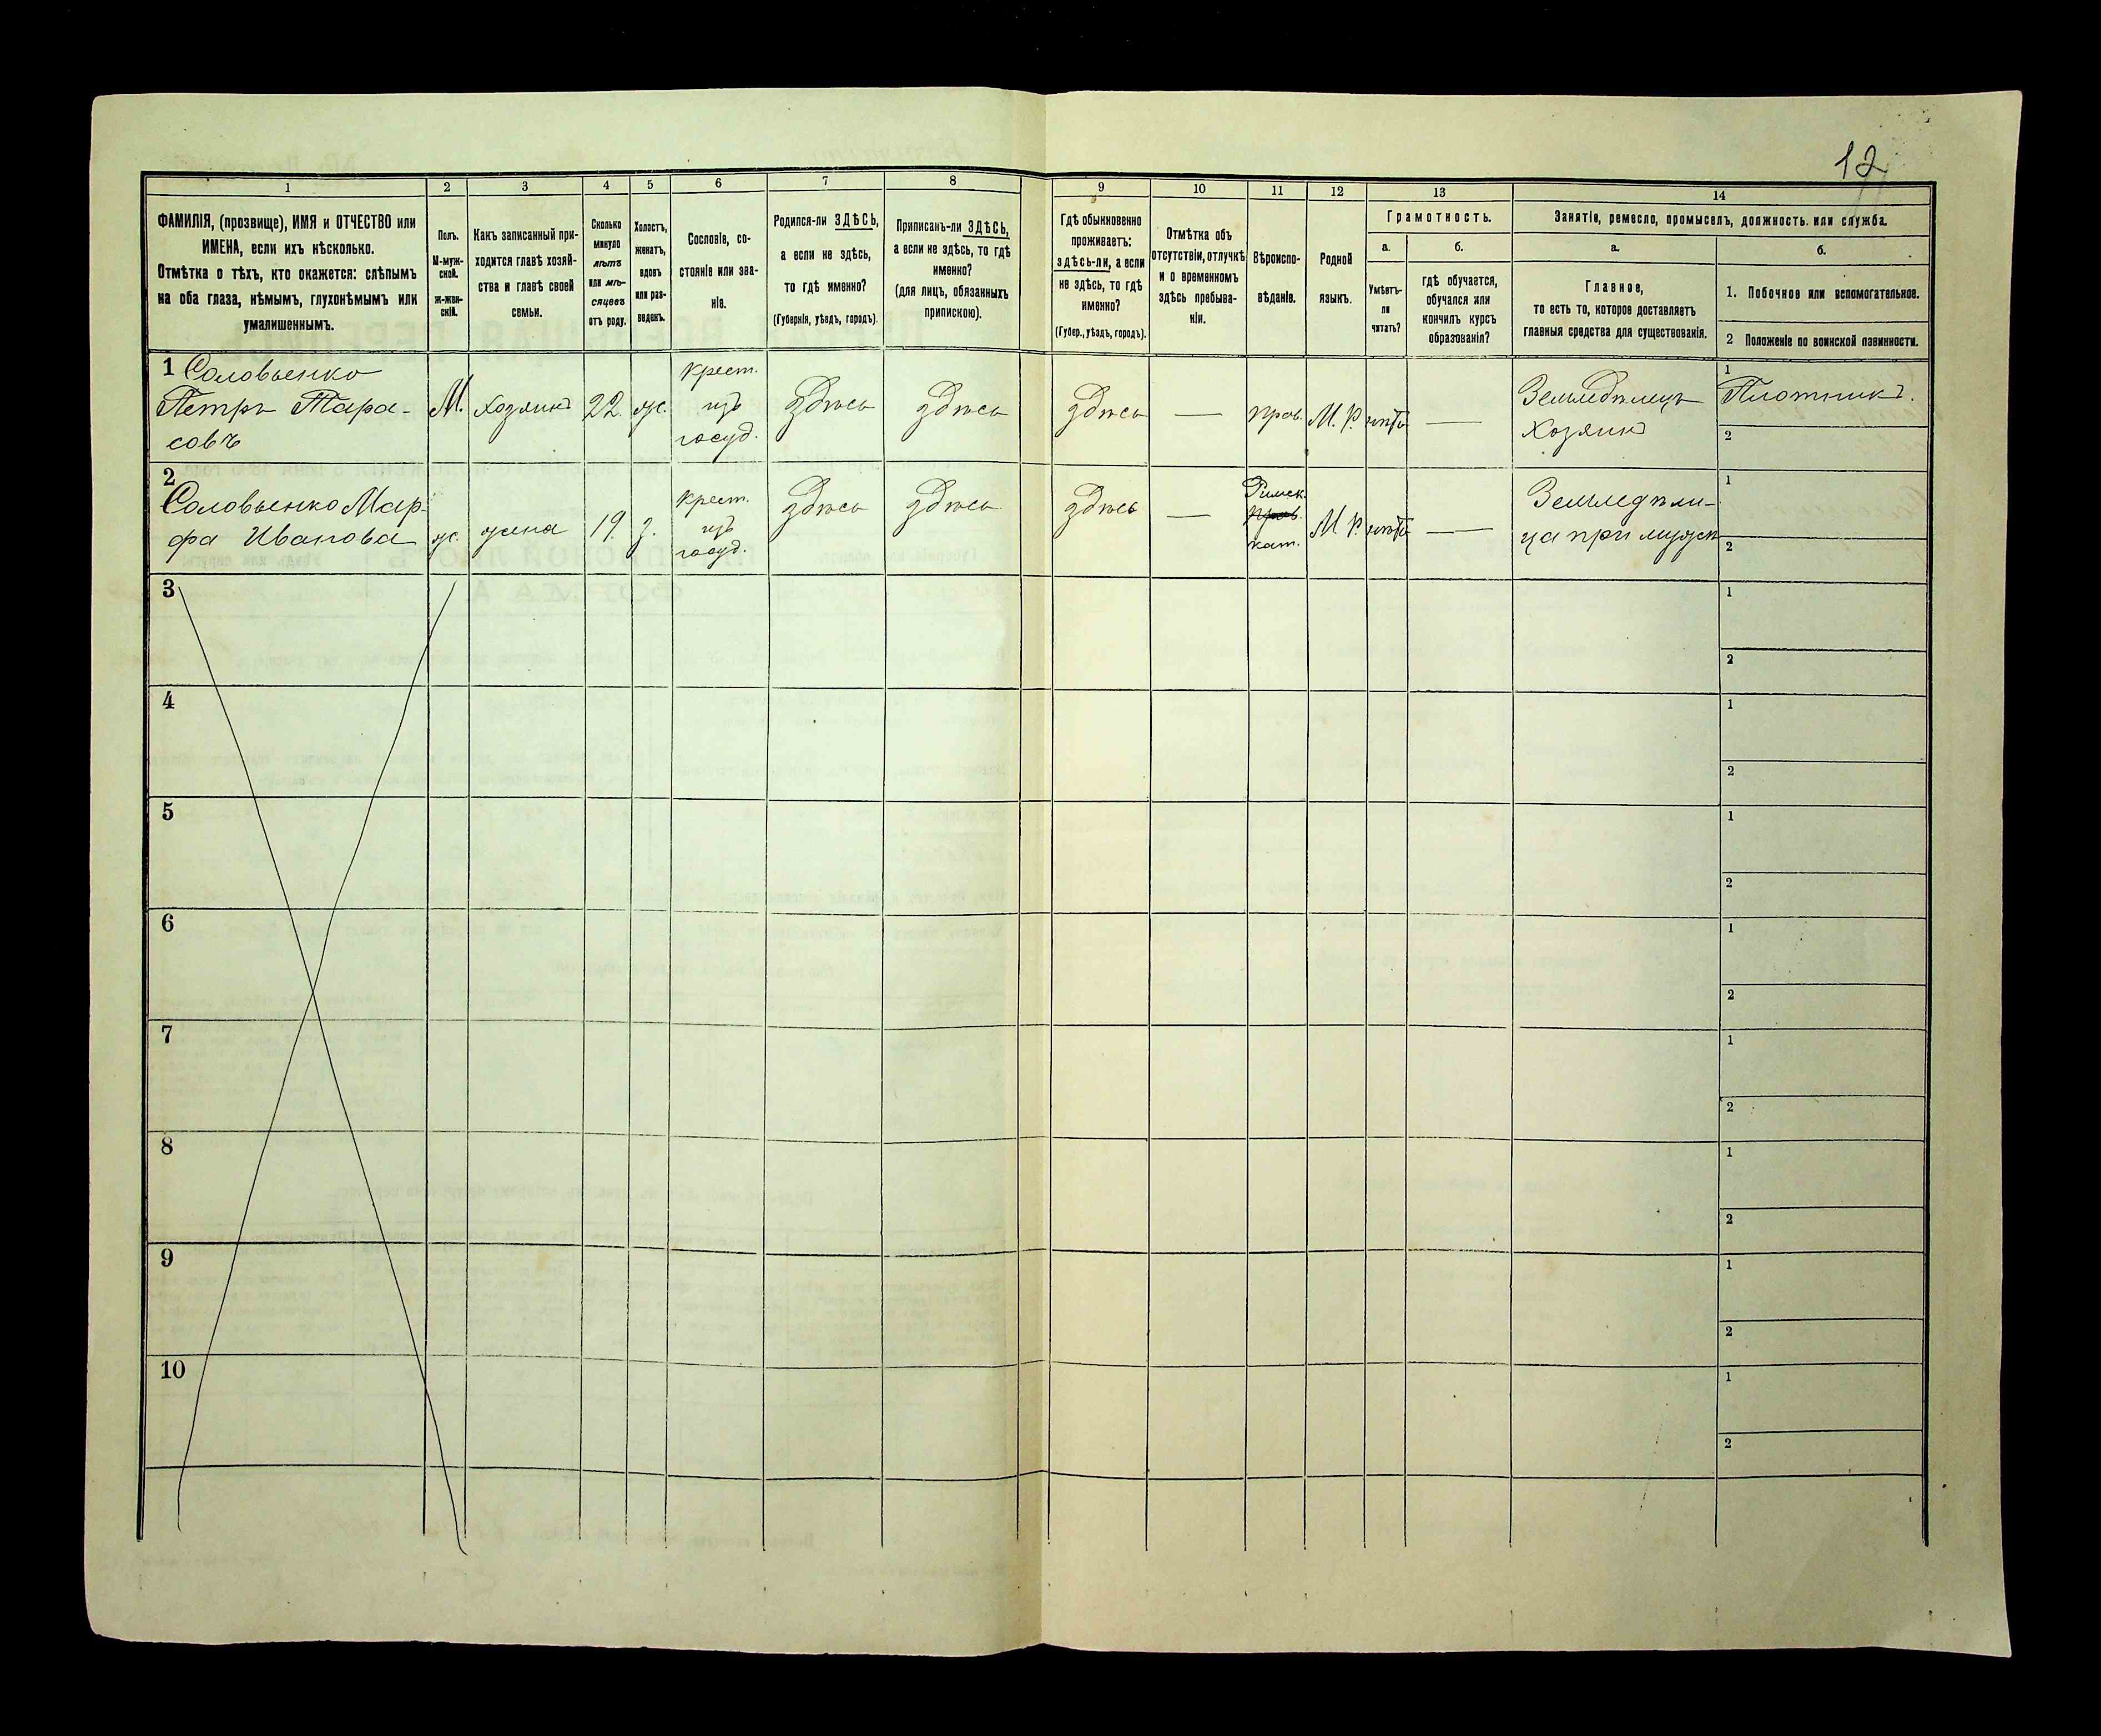 12
1
2
3
4
5
6
7
8
9
10
11
12
13
14
ФАМИЛІЯ, (прозвище), ИМЯ и ОТЧЕСТВО или
ИМЕНА, если ихъ нѣсколько.
Отмѣтка о тѣхъ, кто окажется: слѣпымъ
на оба глаза, нѣмымъ, глухонѣмымъ или
умалишеннымъ.
Полъ.
М-муж-
ской.
ж-жен-
скій.
Какъ записанный при-
ходится главѣ хозяй-
ства и главѣ своей
семьи.
Сколько
минуло
лѣтъ
или мѣ-
сяцевъ
отъ роду.
Холостъ,
женатъ,
вдовъ
или раз-
веденъ.
Сословіе, со-
стояніе или зва-
ніе.
Родился-ли ЗДѢСЬ,
а если не здѣсь,
то гдѣ именно?
(Губернія, уѣздъ, городъ).
Приписанъ-ли ЗДѢСЬ,
а если не здѣсь, то гдѣ
именно?
(для лицъ, обязанныхъ
припискою).
Гдѣ обыкновенно
проживаетъ:
здѣсь-ли, а если
не здѣсь, то гдѣ
именно?
(Губер., уѣздъ, городъ).
Отмѣтка объ
отсутствіи, отлучкѣ
и о временномъ
здѣсь пребыва-
ніи.
Вѣроиспо-
вѣданіе.
Родной
языкъ.
Грамотность.
а.
Умѣетъ-
ли
читать?
б.
гдѣ обучается,
обучался или
кончилъ курсъ
образованія?
Занятіе, ремесло, промыселъ, должность или служба.
а.
Главное,
то есть то, которое доставляетъ
главныя средства для существованія.
б.
1. Побочное или вспомогательное.
2 Положеніе по воинской повинности.
1 Соловьенко
Петръ Тара-
совъ
М.
хозяинъ
22.
ж.
крест.
изъ
госуд.
здѣсь
здѣсь
здѣсь
—
прав.
М. Р.
нѣтъ
—
Земледѣлецъ
хозяинъ
1
Плотникъ.
2
2
Соловьенко Мар-
фа Иванова
ж.
жена
19.
з.
крест.
изъ
госуд.
здѣсь
здѣсь
здѣсь
—
Римск.
прав.
кат.
М. Р.
нѣтъ
—
Земледѣли-
ца при мужѣ
1
2
3
1
2
4
1
2
5
1
2
6
1
2
7
1
2
8
1
2
9
1
2
10
1
2